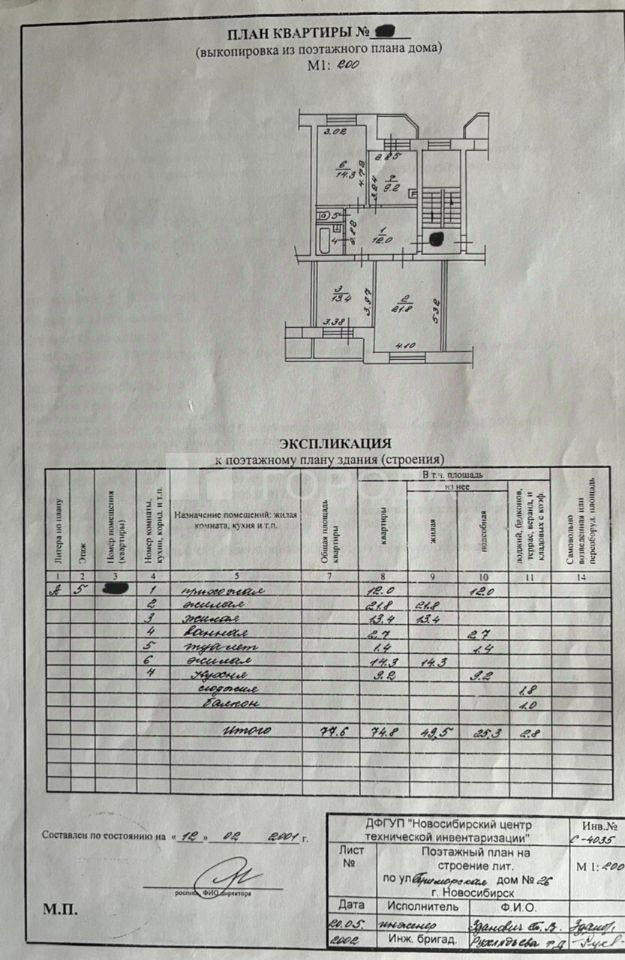 ПЛАН КВАРТИРЫ №
(выкопировка из поэтажного плана дома)
М1: 200
3.02
6
14.3
4.78
2.85
7
9.2
3.24
5
4
1
12.0
3
13.4
3.97
3.38
2
21.8
5.32
4.10
ЭКСПЛИКАЦИЯ
к поэтажному плану здания (строения)
Литера по плану
Этаж
Номер помещения (квартиры)
Номер комнаты, кухни, корид. и т.п.
Назначение помещений: жилая комната, кухня и т.п.
Общая площадь квартиры
В т.ч. площадь
из нее
квартиры
жилая
подсобная
лоджий, балконов, террас, веранд, и кладовых с коэф.
Самовольно возведенная или переоборуд. площадь
1 2 3 4 5 7 8 9 10 11 14
А 5 1 прихожая 12.0 12.0
2 жилая 21.8 21.8
3 жилая 13.4 13.4
4 ванная 2.7 2.7
5 туалет 1.4 1.4
6 жилая 14.3 14.3
4 кухня 9.2 9.2
лоджия 1.8
балкон 1.0
Итого 77.6 74.8 49,5 25.3 2.8
Составлен по состоянию на « 12 » 02 2001 г.
роспись, ФИО директора
М.П.
ДФГУП "Новосибирский центр технической инвентаризации"
Инв.№
С-4035
Лист №
Поэтажный план на
строение лит.
по ул Приморская дом № 26
г. Новосибирск
М 1: 200
Дата Исполнитель Ф.И.О.
20.05. инженер Зданович Т.В.
2002 Инж. бригад.